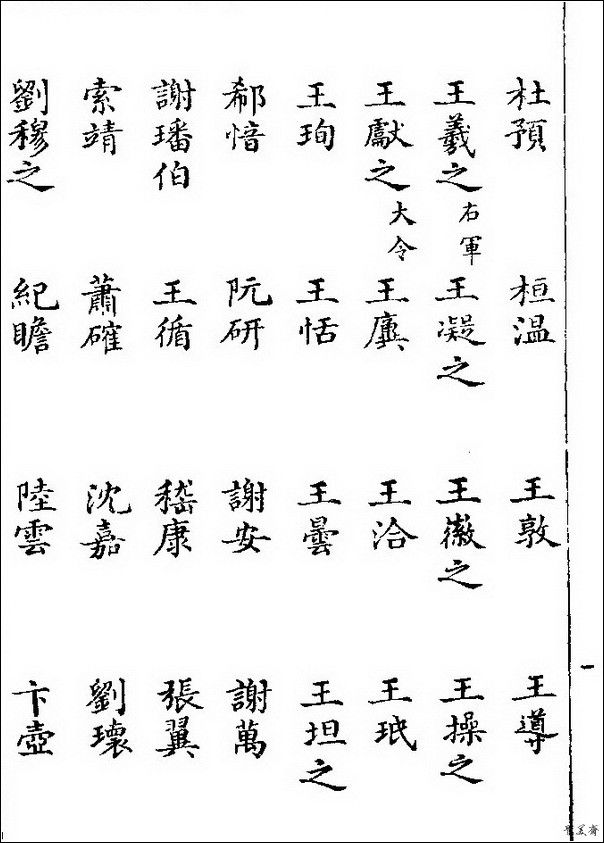 杜預 桓温 王敦 王導
王羲之 右軍 王凝之 王徽之 王操之
王獻之 大令 王廙 王洽 王珉
王珣 王恬 王曇 王坦之
郗愔 阮研 謝安 謝萬
謝璠伯 王循 嵇康 張翼
索靖 蕭確 沈嘉 劉瓌
劉穆之 紀瞻 陸雲 卞壺